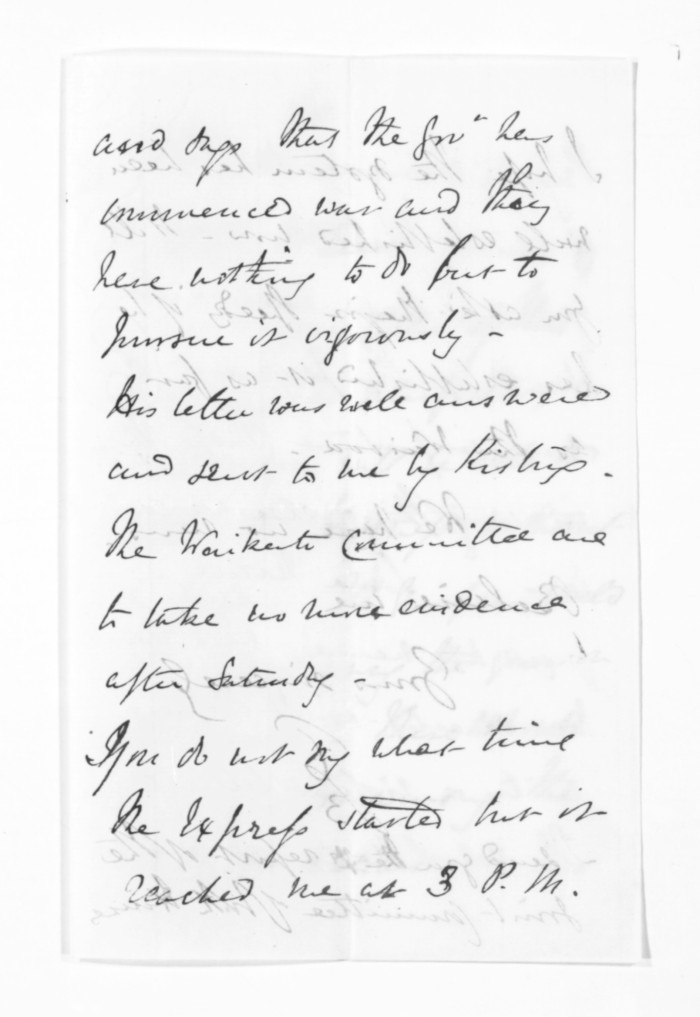 and says that the Gov<sup>r</sup> has
commenced war and they
have nothing to do but to
pursue it vigorously -
His letter was well answered
and sent to me by
The Waikato Committee are
to take no more evidence
after Saturday -
You do not say what time
the Express started but it
reached me at 3 P.M.